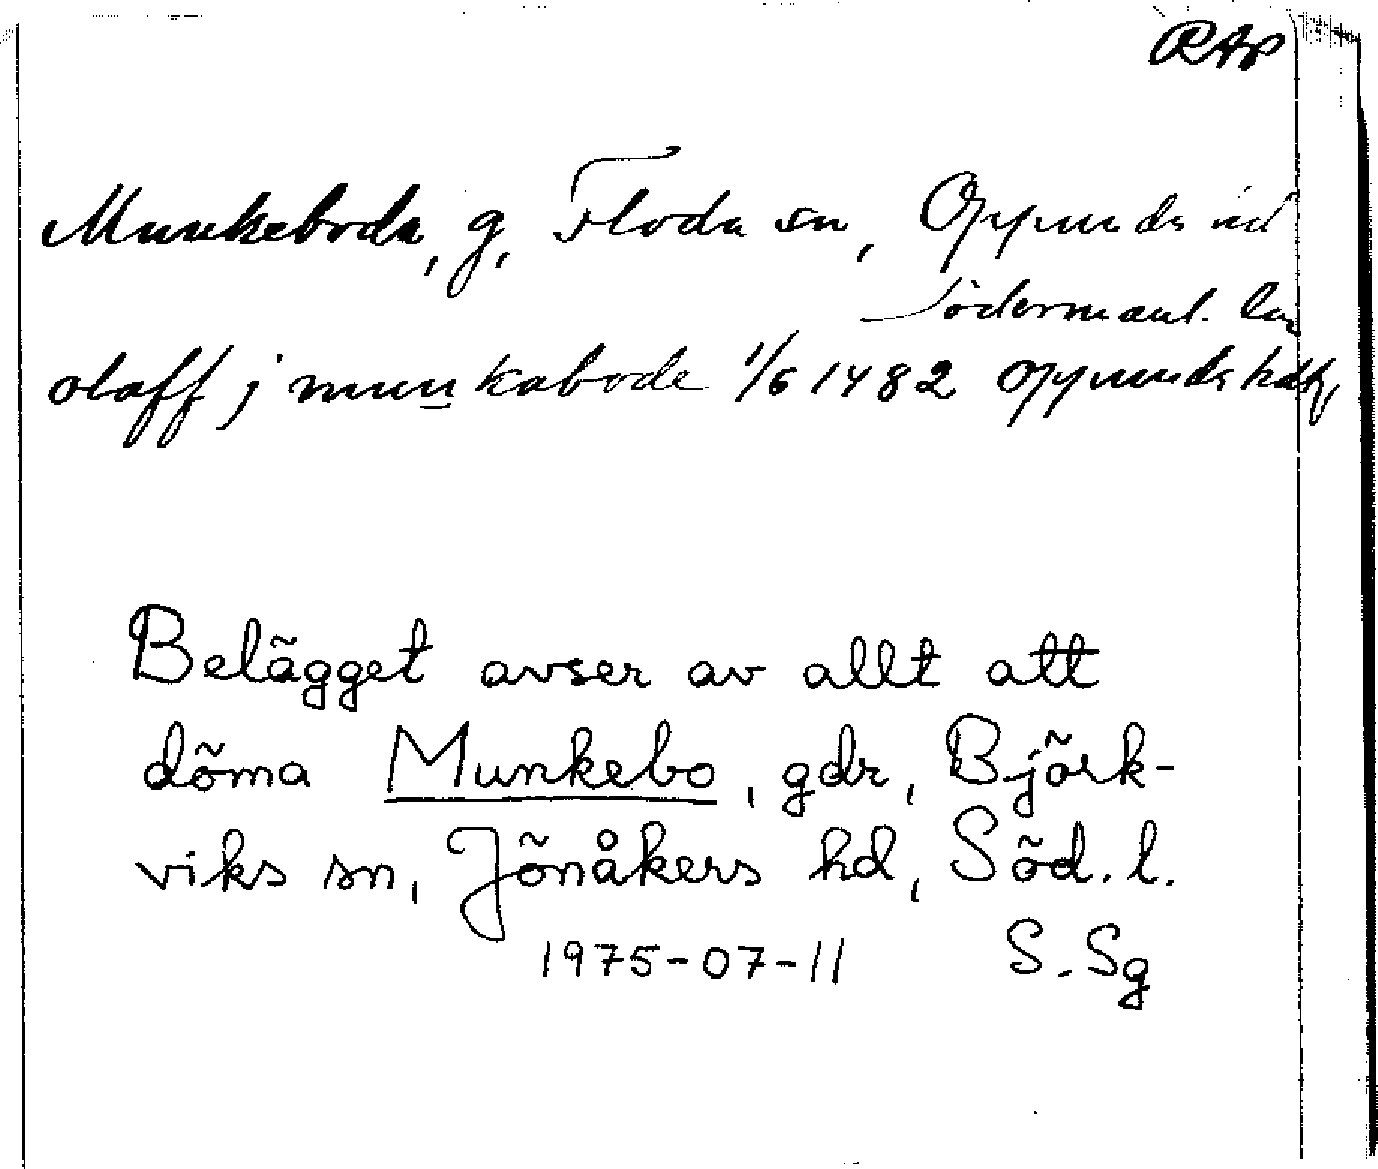 RAp
Munkeboda, g, Floda sn, Oppunda hd
Södermanl. län
olaff j munkabode 1/6 1482 Oppunda
Belägget avser av allt att
döma Munkebo, gdr, Björk-
viks sn, Jönåkers hd, Söd. l.
1975-07-11 S. Sg